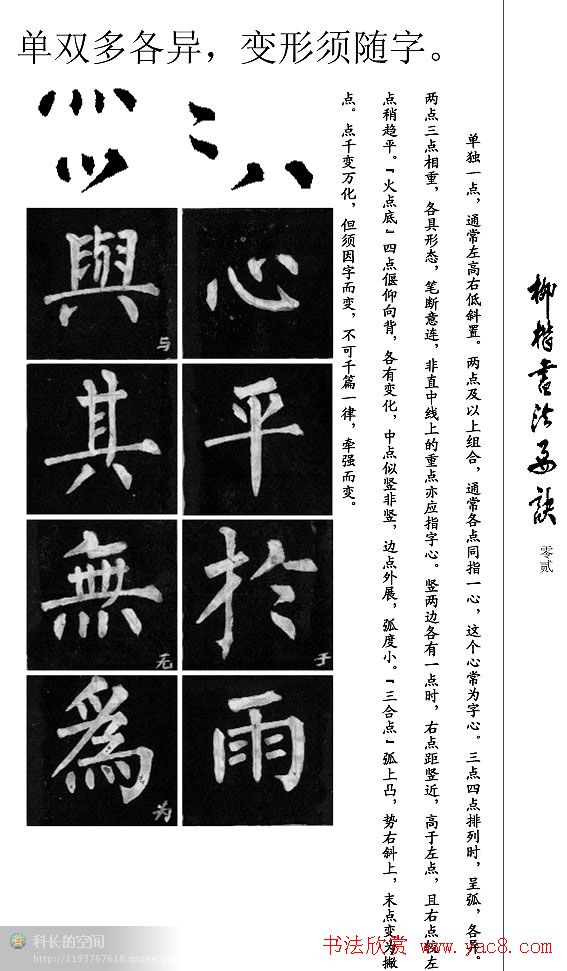 单双多各异，变形须随字。
柳楷書法要訣
零贰
单独一点，通常左高右低斜置。两点及以上组合，通常各点同指一心，这个心常为字心。三点四点排列时，呈弧，各异。
两点三点相重，各具形态，笔断意连，非直中线上的重点亦应指字心。竖两边各有一点时，右点距竖近，高于左点，且右点较左
点稍趋平。『火点底』四点偃仰向背，各有变化，中点似竖非竖，边点外展，弧度小。『三合点』弧上凸，势右斜上，末点变为撇
点。点千变万化，但须因字而变，不可千篇一律，牵强而变。
心
平
於
于
雨
與
与
其
無
无
爲
为
科长的空间
http://1193767618.qzone.qq
书法欣赏 www.yac8.com